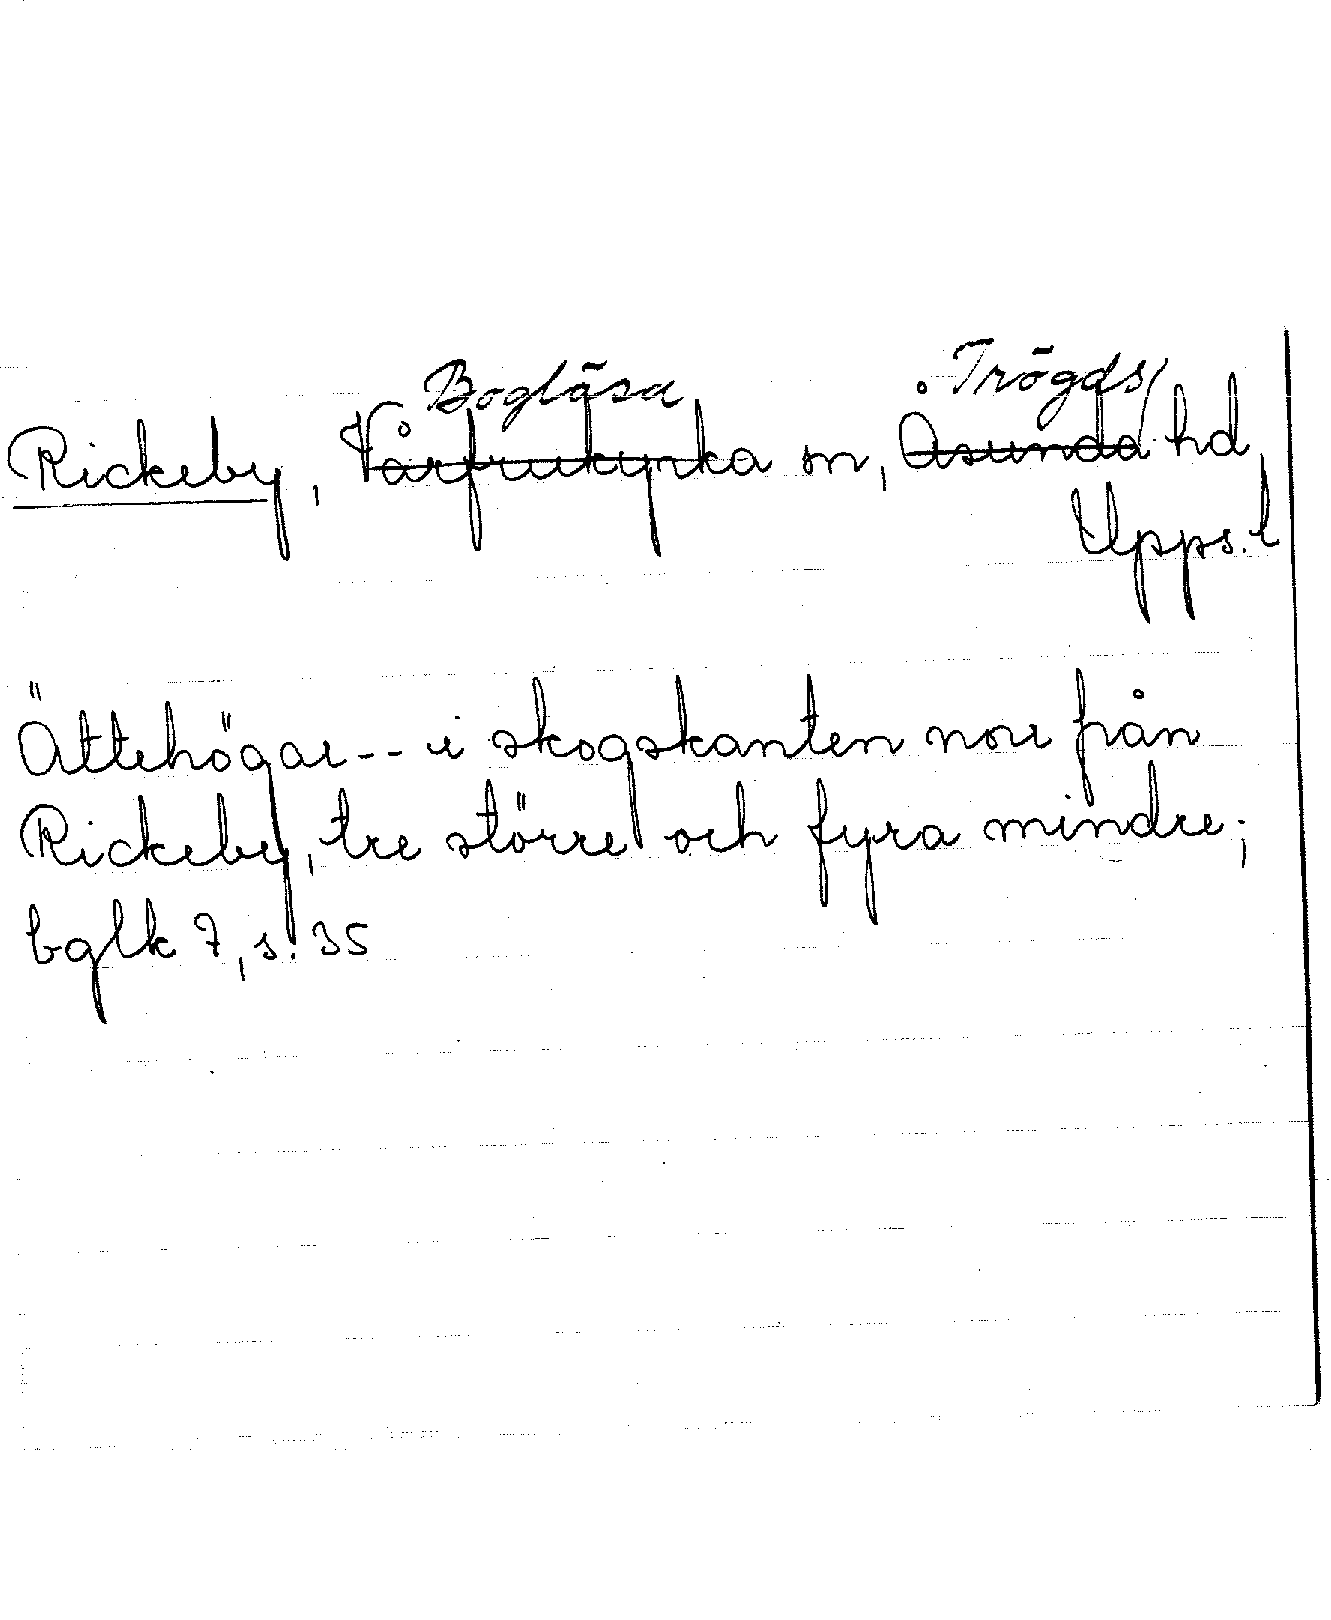 Boglösa Trögds
Rickeby, Vårfrukyrka sn, Åsunda hd,
Upps. l
Ättehögar -- i skogskanten norr från
Rickeby, tre större och fyra mindre;
bglk 7, s. 35